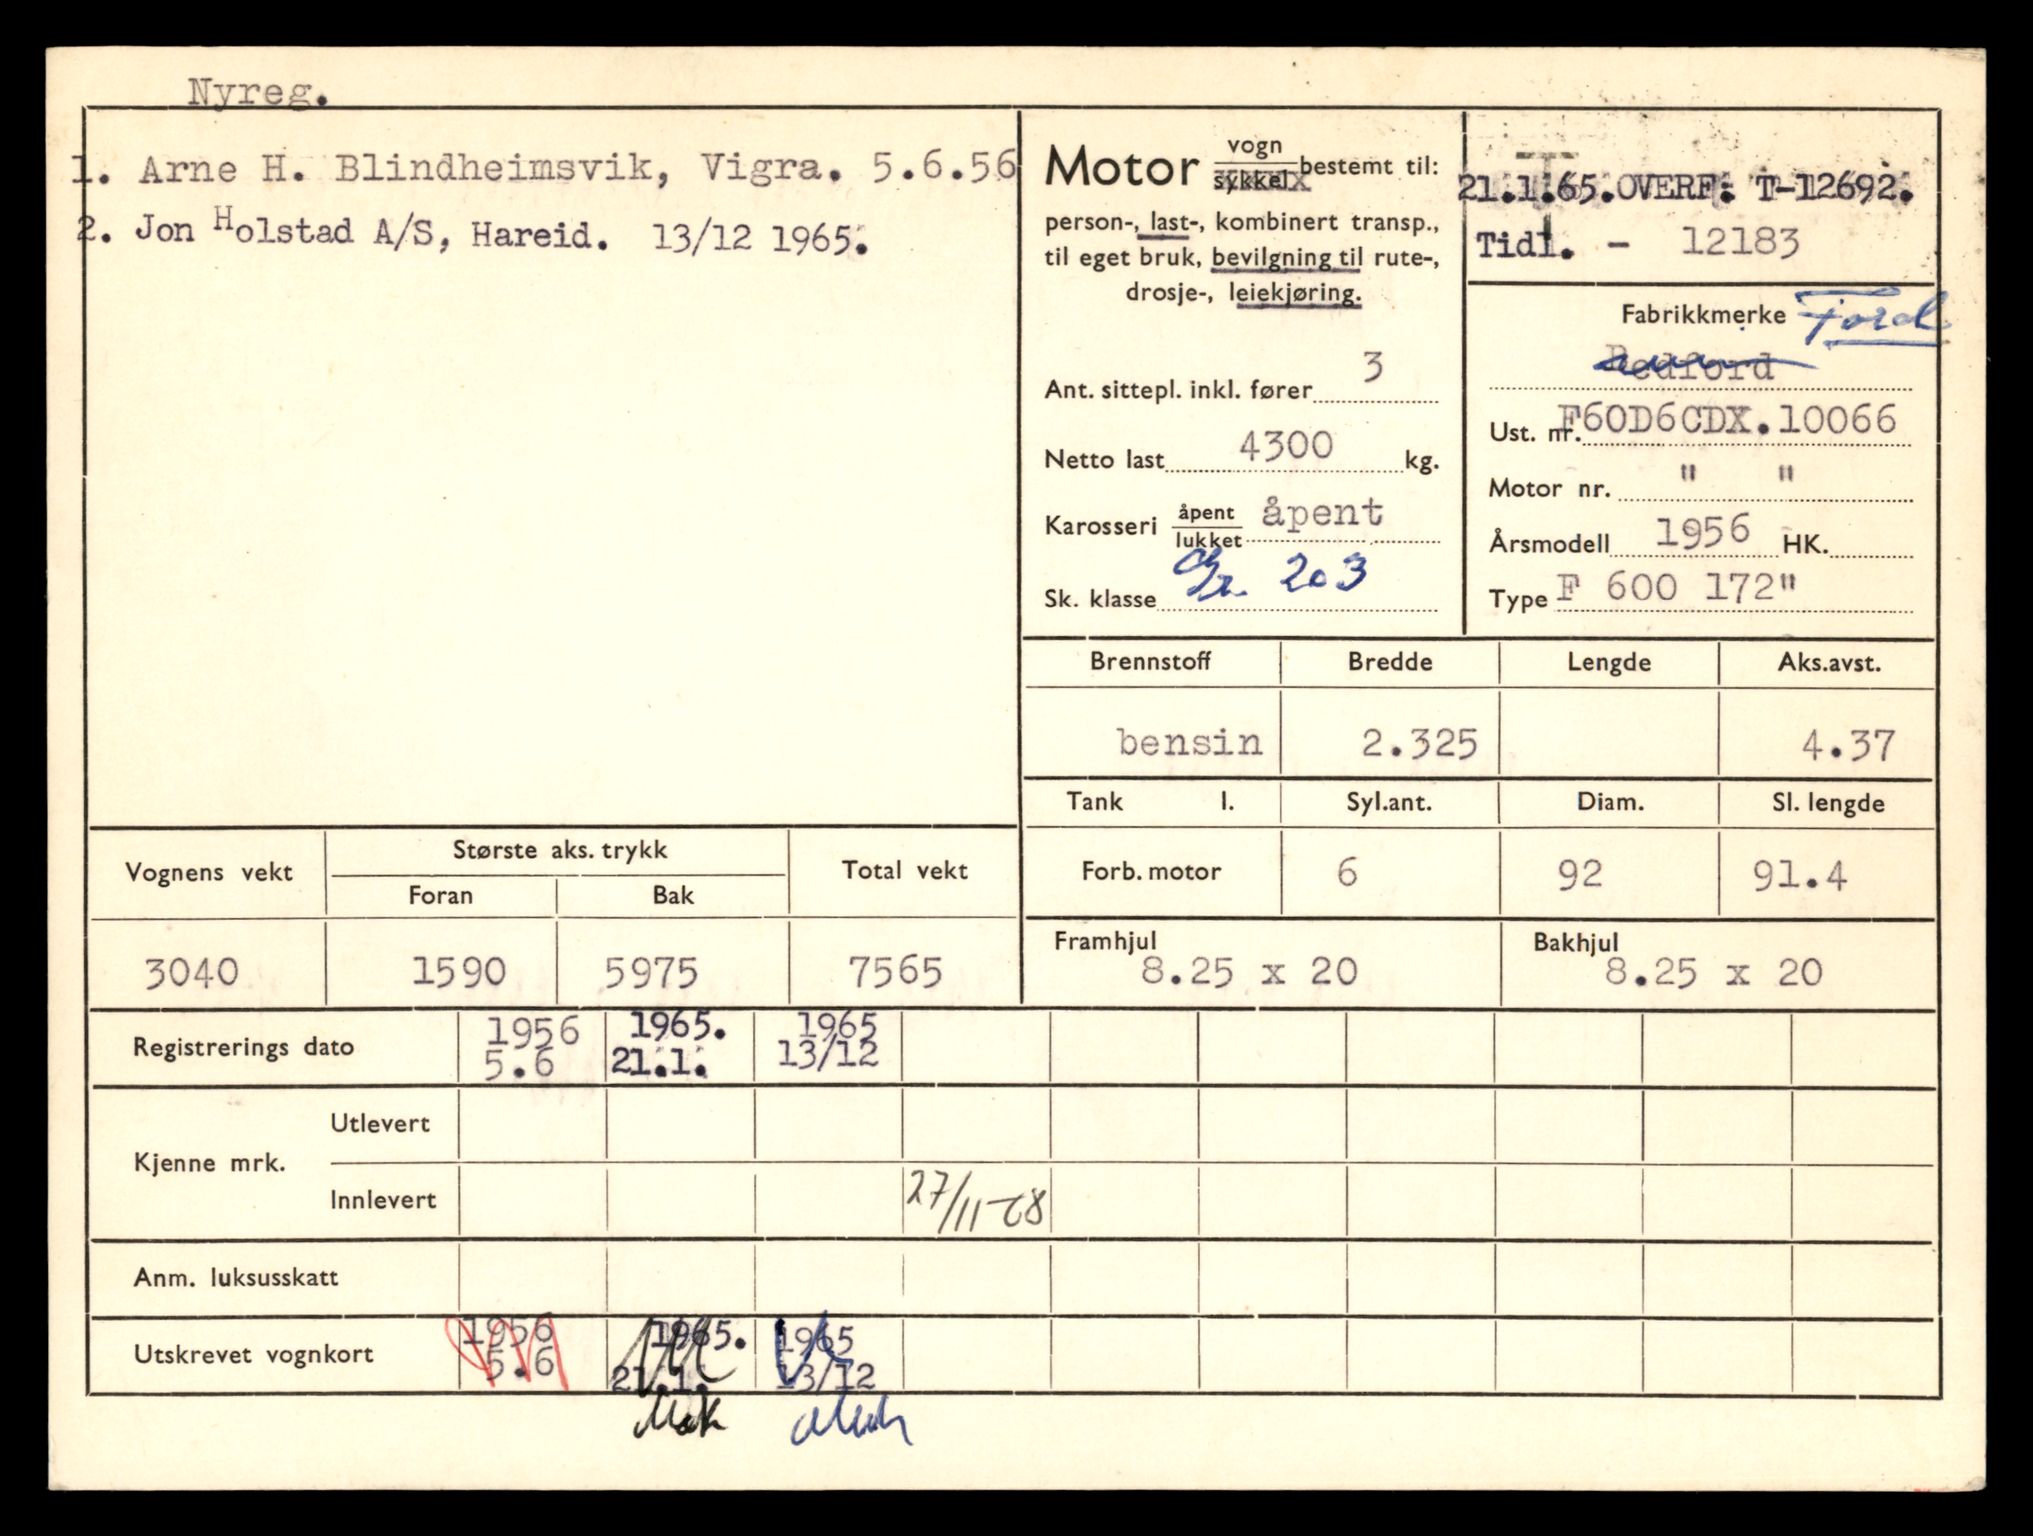 Nyreg.
1. Arne H. Blindheimsvik, Vigra. 5.6.56
2. Jon Holstad A/S, Hareid. 13/12 1965.
Motor vogn sykkel bestemt til:
person-, last-, kombinert transp.,
til eget bruk, bevilgning til rute-,
drosje-, leiekjøring.
Ant. sittepl. inkl. fører 3
Netto last 4300 kg.
Karosseri åpent lukket åpent
Sk. klasse 203
21.1.65.OVERF: T-12692.
Tidl. - 12183
Fabrikkmerke Ford
Bedford
Ust. nr. F60D6CDX.10066
Motor nr. " "
Årsmodell 1956 HK.
Type F 600 172"
Brennstoff Bredde Lengde Aks.avst.
bensin 2.325 4.37
Tank l. Syl.ant. Diam. Sl. lengde
Forb. motor 6 92 91.4
Framhjul 8.25 x 20 Bakhjul 8.25 x 20
Vognens vekt Største aks. trykk Total vekt
Foran Bak
3040 1590 5975 7565
Registrerings dato 1956 5.6 1965. 21.1. 1965 13/12
Kjenne mrk. Utlevert
Innlevert 27/11-68
Anm. luksusskatt
Utskrevet vognkort 1956 5.6 1965. 21.1. 1965 13/12